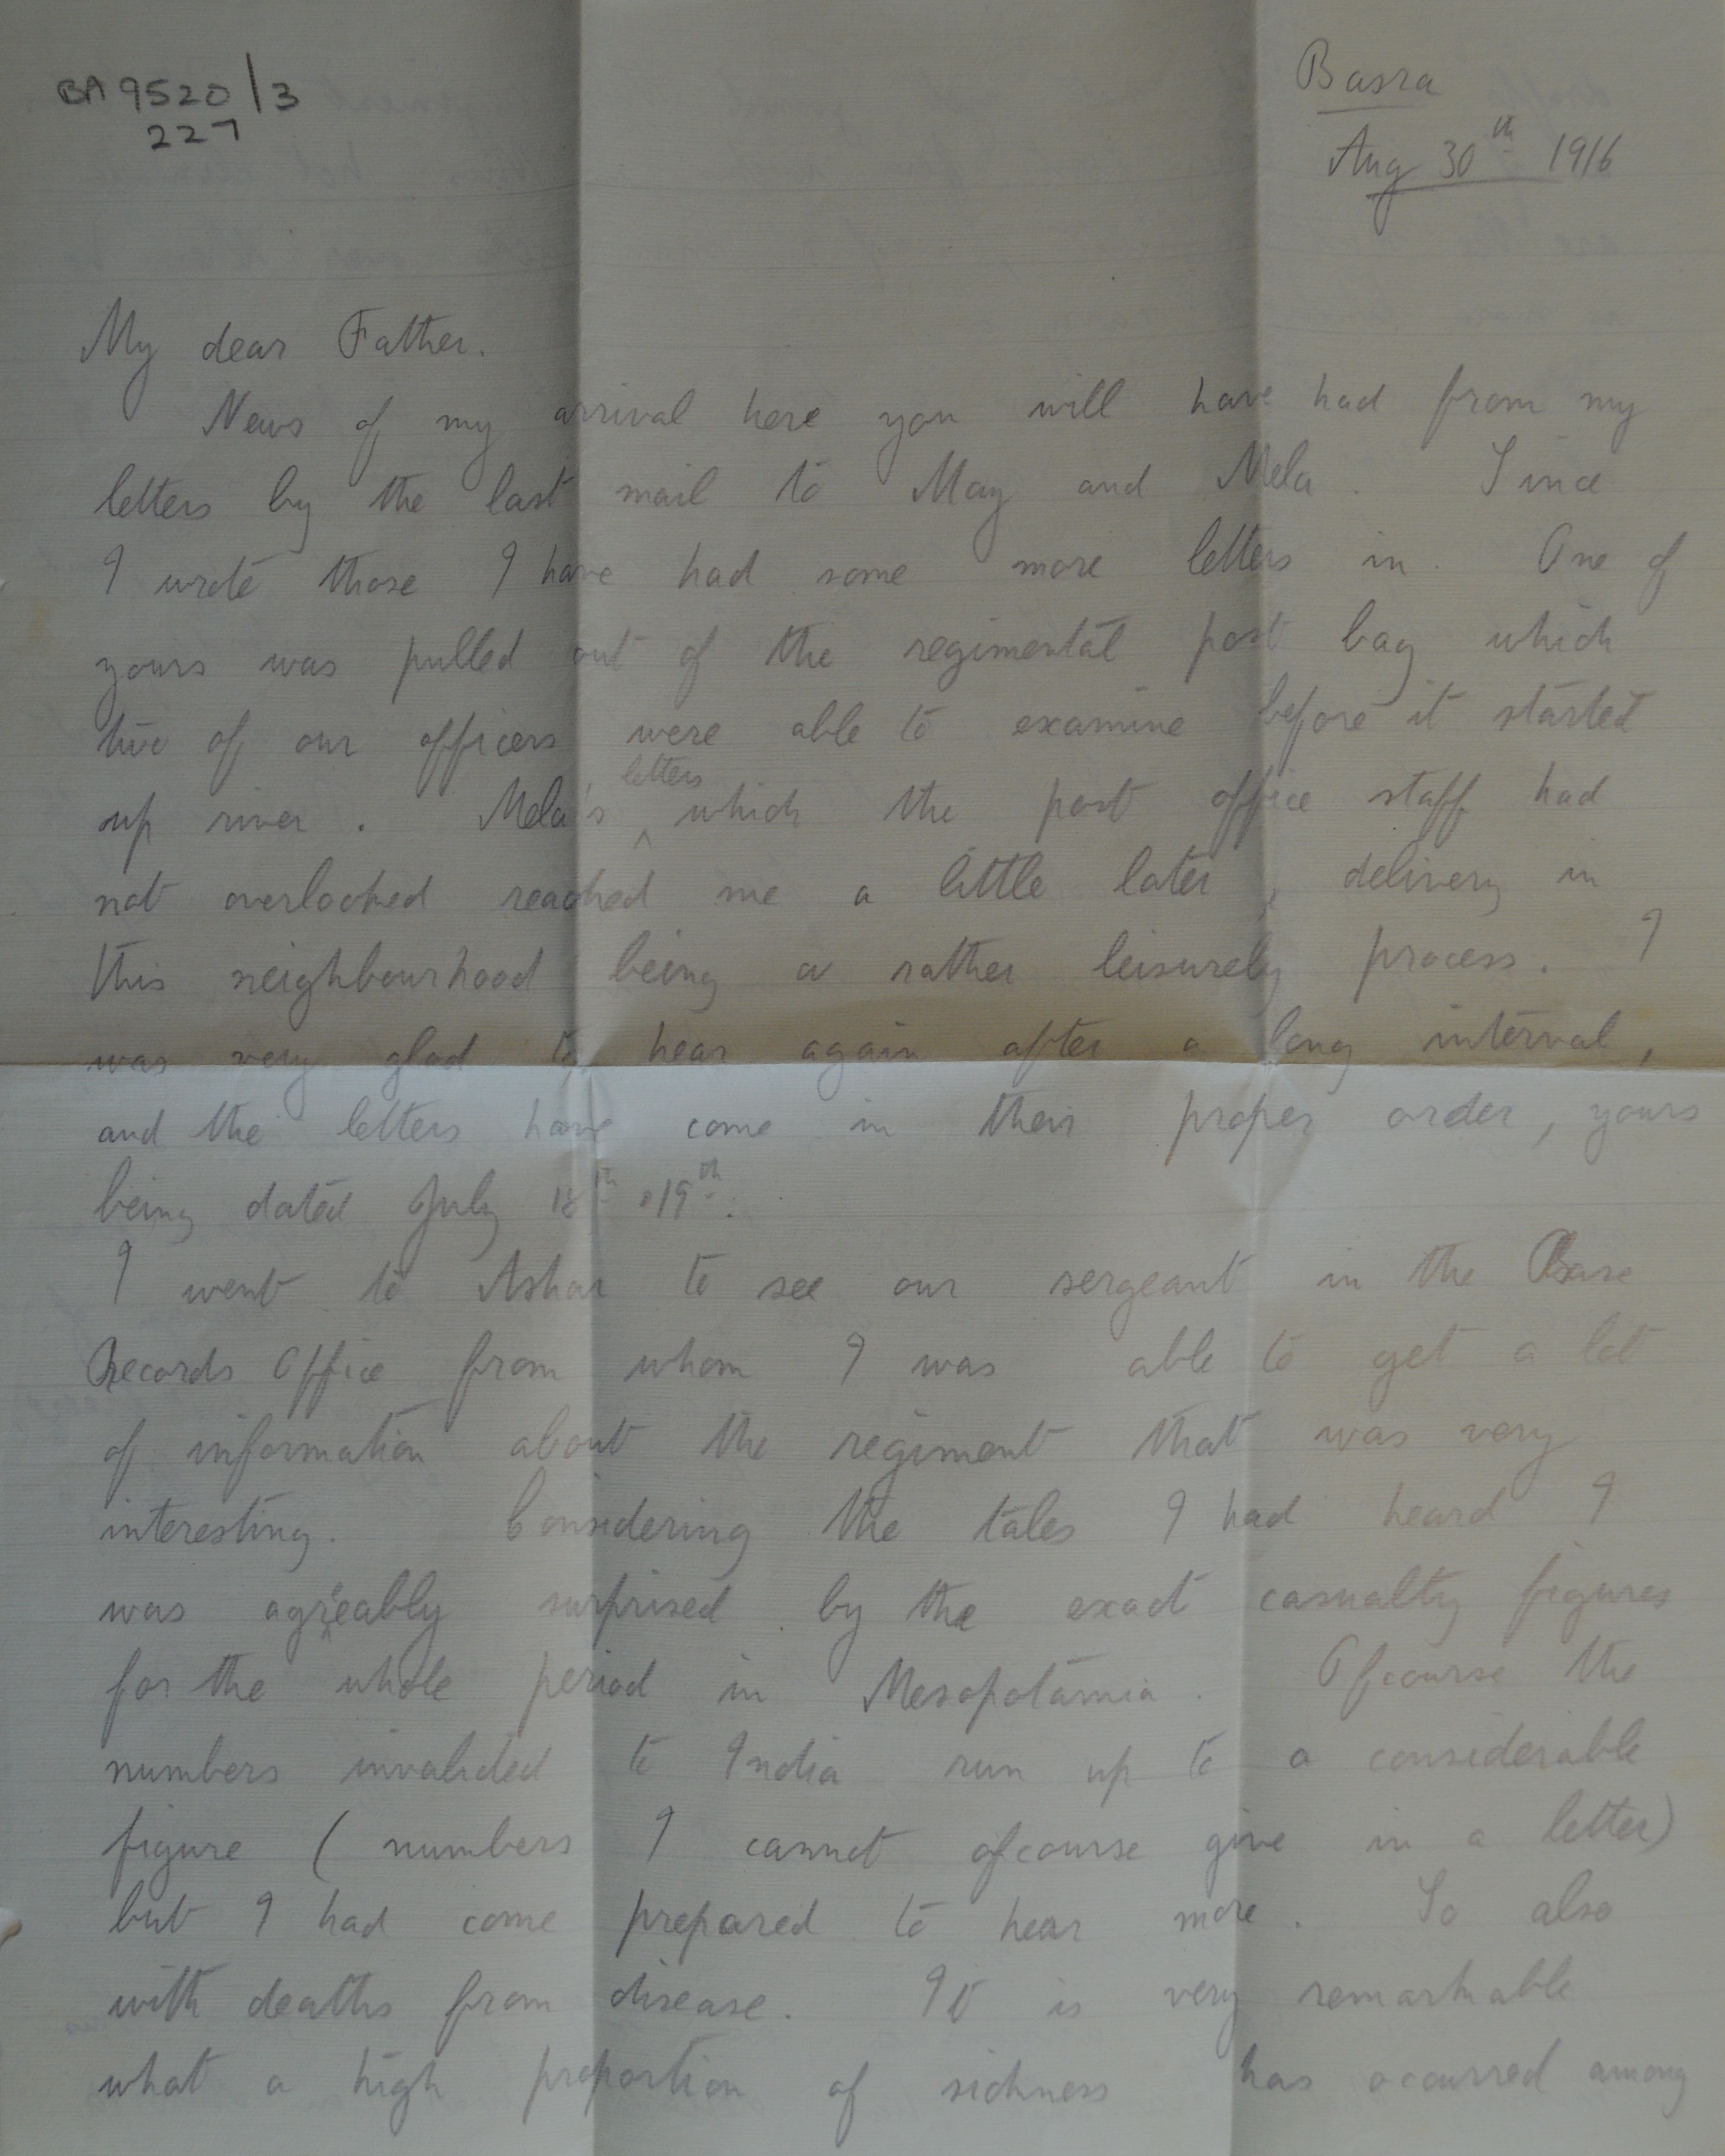 BA 9520/3
227
Basra
Aug 30th 1916
My dear Father.
News of my arrival here you will have had from my
letters by the last mail to May and Mela. Since
I wrote those I have had some more letters in. One of
yours was pulled out of the regimental post bag which
two of our officers were able to examine before it started
up river. Mela's letters which the post office staff had
not overlooked reached me a little later, delivery in
this neighbourhood being a rather leisurely process. I
was very glad to hear again after a long interval,
and the letters have come in their proper order, yours
being dated July 18th & 19th.
I went to Ashar to see our sergeant in the Base
Records Office from whom I was able to get a lot
of information about the regiment that was very
interesting. Considering the tales I had heard I
was agreeably surprised by the exact casualty figures
for the whole period in Mesopotamia. Ofcourse the
numbers invalided to India run up to a considerable
figure (numbers I cannot ofcourse give in a letter)
but I had come prepared to hear more. So also
with deaths from disease. It is very remarkable
what a high proportion of sickness has ocurred among